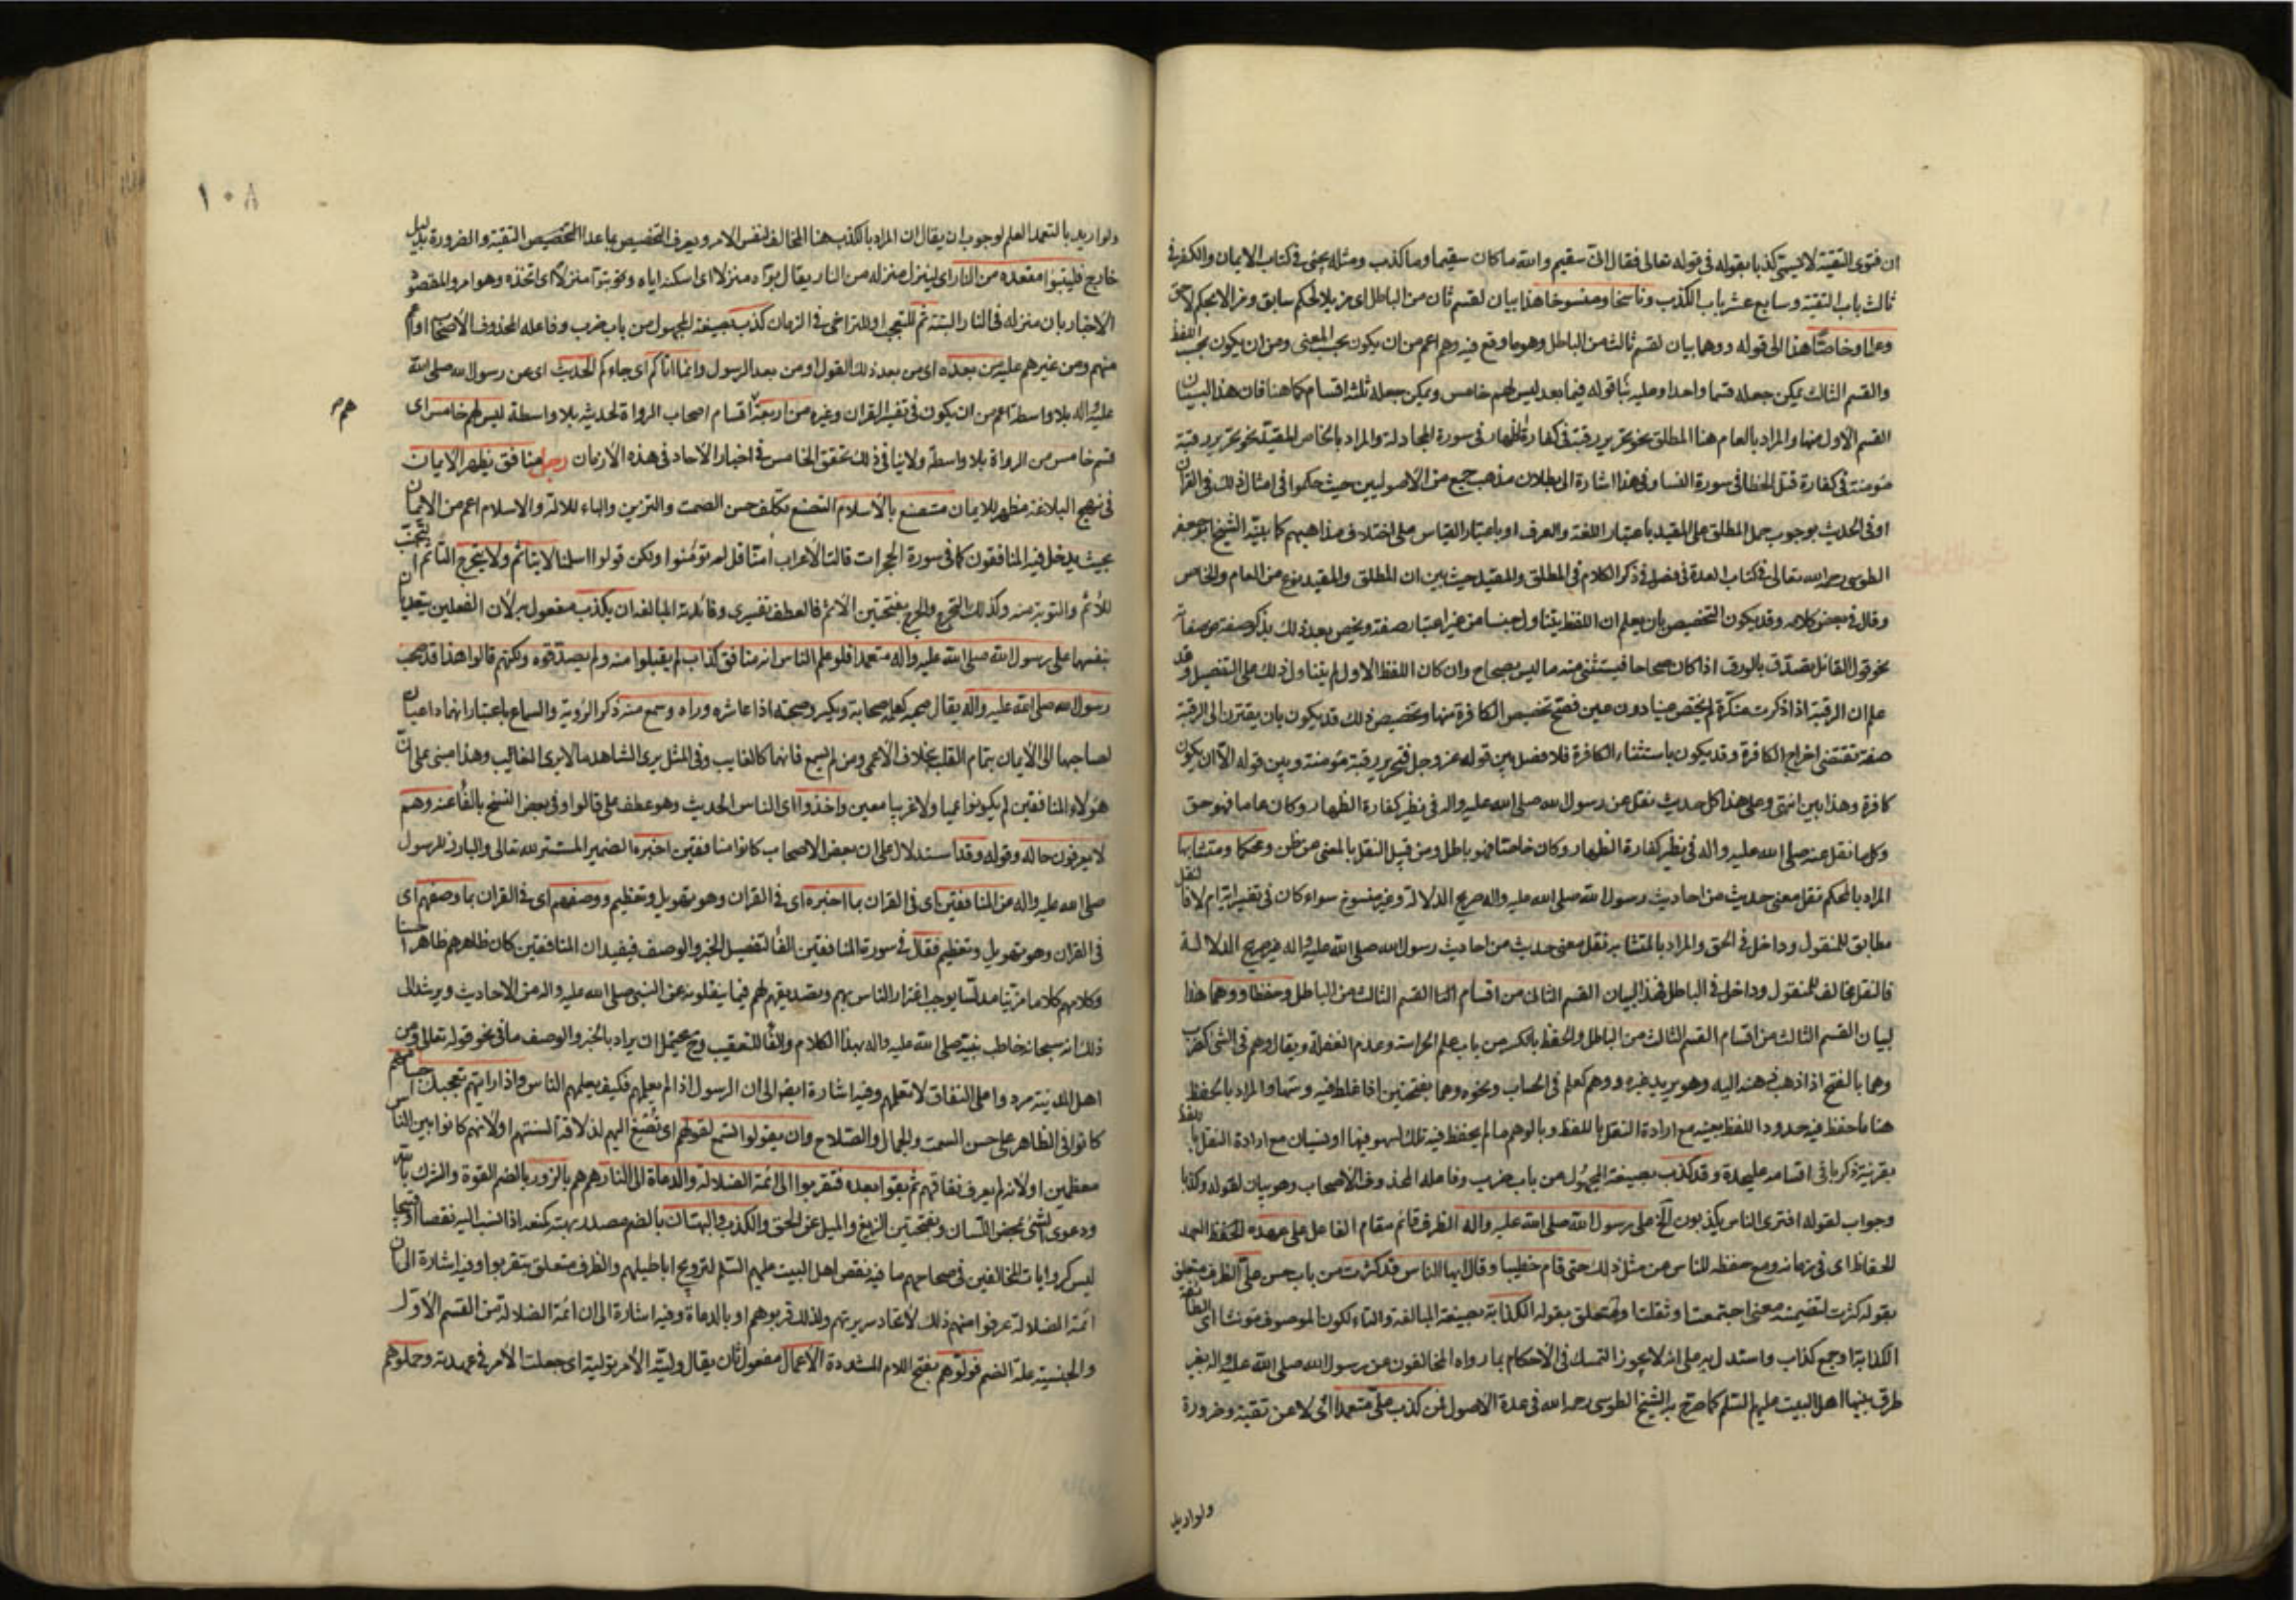 ان فتوى التقية لا يسمى كذبا بقوله في قوله تعالى فقال انى سقيم والله ما كان سقيما وما كذب ومثله يجئ في كتاب الايمان والكفر في
ثالث باب التقية وسابع عشر باب الكذب وناسخا ومنسوخا هذا بيان لقسم ثان من الباطل اى مزيلا لحكم سابق ومزالا بحكم لاحق
وعاما وخاصا هذا الى قوله ووهما بيان لقسم ثالث من الباطل وهو ما وقع فيه وهم اعم من ان يكون بحسب المعنى ومن ان يكون بحسب اللفظ
والقسم الثالث يمكن جعله قسما واحدا وعليه بنا قوله فيما بعد ليس لهم خامس ويمكن جعله ثلثة اقسام كما هنا فان هذا لبيان
القسم الاول منها والمراد بالعام هنا المطلق نحو تحرير رقبة في كفارة الظهار في سورة المجادلة والمراد بالخاص المقيد نحو تحرير رقبة
مؤمنة في كفارة قتل الخطا في سورة النسا وفي هذا اشارة الى بطلان مذهب جمع من الاصوليين حيث حكموا في امثال ذلك في القرآن
او في الحديث بوجوب حمل المطلق على المقيد باعتبار اللغة والعرف او باعتبار القياس على اختلاف مذاهبهم كما بينه الشيخ ابو جعفر
الطوسى رحمه الله تعالى في كتاب العدة في فصل في ذكر الكلام في المطلق والمقيد حيث بين ان المطلق والمقيد نوع من العام والخاص
وقال في بعض كلامه وقد يكون التخصيص بان يعلم ان اللفظ يتناول جنسا من غير اعتبار صفة ويخص بعد ذلك بذكر صفة من صفاته
نحو قول القائل تصدق بالورق اذا كان صحاحا فيستثنى منه ما ليس بصحاح وان كان اللفظ الاول لم يتناول ذلك على التفصيل وقد
علم ان الرقبة اذا ذكرت منكرة لم يختص عينا دون عين فصح تخصيص الكافرة منها وتخصيص ذلك قد يكون بان يقترن الى الرقبة
صفة تقتضى اخراج الكافرة وقد يكون باستثناء الكافرة فلا فصل بين قوله عز وجل فتحرير رقبة مؤمنة وبين قوله الا ان يكون
كافرة وهذا بين انتهى وعلى هذا كل حديث نقل عن رسول الله صلى الله عليه واله في نظير كفارة الظهار وكان عاما فهو حق
وكل ما نقل عنه صلى الله عليه واله في نظير كفارة الظهار وكان خاصا فهو باطل ومن قبيل النقل بالمعنى من ظن ومحكما ومتشابها
المراد بالمحكم نقل معنى حديث من احاديث رسول الله صلى الله عليه واله صريح الدلالة وغير منسوخ سواء كان في تفسير اية ام لا فالنقل
مطابق للمنقول وداخل في الحق والمراد بالمتشابه نقل معنى حديث من احاديث رسول الله صلى الله عليه واله غير صريح الدلالة
فالنقل مخالف للمنقول وداخل في الباطل فهذا لبيان القسم الثانى من اقسام القسم الثالث من الباطل وحفظا ووهما هذا
لبيان القسم الثالث من اقسام القسم الثالث من الباطل والحفظ بالكسر من باب علم الحراسة وعدم الغفلة ويقال وهم في الشئ كضرب
وهما بالفتح اذا ذهب ذهنه اليه وهو يريد غيره ووهم كعلم في الحساب ونحوه وهما بفتحتين اذا غلط فيه وسها والمراد بالحفظ
هنا ما حفظ فيه حدود اللفظ بعينه مع ارادة النقل باللفظ وبالوهم ما لم يحفظ فيه تلك لسهو فيها او نسيان مع ارادة النقل باللفظ
بقرينة ذكر باقى اقسامه عليحدة وقد كذب بصيغة المجهول من باب ضرب وفاعله المحذوف الاصحاب وهو بيان لقوله وكذبا
وجواب لقوله افترى الناس يكذبون الخ على رسول الله صلى الله عليه واله الظرف قائم مقام الفاعل على عهده الحفظ العهد
الحفاظ اى في زمانه ومع حفظه للناس من مثل ذلك حتى قام خطيبا وقال ايها الناس قد كثرت من باب حسن على الظرف متعلق
بقوله كثرت لتضمنه معنى اجتمعت او ثقلت او متعلق بقوله الكذابة بصيغة المبالغة والتاء لكون الموصوف مؤنثا اى الطائفة
الكذابة او جمع كذاب واستدل به على انه لا يجوز التمسك في الاحكام بما رواه المخالفون عن رسول الله صلى الله عليه واله بغير
طرق بينها اهل البيت عليهم السلم كما صرح به الشيخ الطوسى رحمه الله في عدة الاصول فمن كذب على متعمدا اى لا عن تقية وضرورة
ولو اريد
١٠٨
ولو اريد بالتعمد العلم لوجوب ان يقال ان المراد بالكذب هنا المخالف لنفس الامر ويعرف التخصيص بما عدا التخصيص التقية والضرورة بدليل
خارج فليتبوا مقعده من النار اى لينزل منزله من النار يقال بواه منزلا اى اسكنه اياه وتبوات منزلا اى اتخذه وهو امر والمقصود
الاخبار بان منزله في النار البتة ثم للتعجب او للتراخى في الزمان كذب بصيغة المجهول من باب ضرب وفاعله المحذوف الاصحاب او اعم
منهم ومن غيرهم عليه من بعده اى من بعد ذلك القول او من بعد الرسول وانما اتاكم اى جاءكم الحديث اى عن رسول الله صلى الله
عليه واله بلا واسطة اعم من ان يكون في تفسير القران وغيره من اربعة اقسام اصحاب الرواة لحديثه بلا واسطة ليس لهم خامس اى
قسم خامس من الرواة بلا واسطة ولا ينافى ذلك تحقق الخامس في اخبار الآحاد في هذه الازمان رجل منافق يظهر الايمان
في نهج البلاغة مظهر للايمان متصنع بالاسلام التصنع تكلف حسن السمت والتزين والباء للآلة والاسلام اعم من الايمان
بحيث يدخل فيه المنافقون كما في سورة الحجرات قالت الاعراب آمنا قل لم تؤمنوا ولكن قولوا اسلمنا لا يتأثم ولا يتحرج التأثم التجنب
للاثم والتوبة منه وكذلك التحرج والحرج بفتحتين الاثم فالعطف تفسيرى وفائدته المبالغة ان يكذب مفعول به لان الفعلين يتعديان
بنفسهما على رسول الله صلى الله عليه واله متعمدا فلو علم الناس انه منافق كذاب لم يقبلوا منه ولم يصدقوه ولكنهم قالوا هذا قد صحب
رسول الله صلى الله عليه واله يقال صحبه كعلم صحابة ويكسر وصحبة اذا عاشره وراه وسمع منه ذكر الرؤية والسماع باعتبار انهما داعيان
لصاحبها الى الايمان بتمام القلب بخلاف الاعمى ومن لم يسمع فانهما كالغايب وفي المثل يرى الشاهد ما لا يرى الغائب وهذا مبنى على ان
هؤلاء المنافقين لم يكونوا عميا ولا غير سامعين واخذوا اى الناس الحديث وهو عطف على قالوا وفي بعض النسخ بالفا عنه وهم
لا يعرفون حاله وقوله وقد استدلال على ان بعض الاصحاب كانوا منافقين اخبره الضمير المستتر لله تعالى والبارز للرسول
صلى الله عليه واله من المنافقين اى في القران بما اخبره اى في القران وهو تهويل وتعظيم ووصفهم اى في القران بما وصفهم اى
في القران وهو تهويل وتعظيم فقال في سورة المنافقين الفا لتفصيل الخبر والوصف فيفيد ان المنافقين كان ظاهرهم ظاهرا حسنا
وكلامهم كلاما مزينا مدلسا يوجب اغترار الناس بهم وتصديقهم لهم فيما ينقلونه عن النبى صلى الله عليه واله من الاحاديث ويرشد الى
ذلك انه سبحانه خاطب نبيه صلى الله عليه واله بهذا الكلام والفا للتعقيب وح يحتمل ان يراد بالخبر والوصف ما في نحو قوله تعالى ومن
اهل المدينة مردوا على النفاق لا تعلمهم وفيه اشارة ايضا الى ان الرسول اذا لم يعلمهم فكيف يعلمهم الناس واذا رايتهم تعجبك اجسامهم
كانوا في الظاهر على حسن السمت والجمال والصلاح وان يقولوا تسمع لقولهم اى تصغ اليهم لذلاقة السنتهم او لانهم كانوا بين الناس
معظمين او لانه لم يعرف نفاقهم ثم بقوا بعده فتقربوا الى ائمة الضلالة والدعاة الى النار هم بالزور بالضم القوة والشرك بالله
ودعوى الشئ بمحض اللسان وبفتحتين الزيغ والميل عن الحق والكذب والبهتان بالضم مصدر بهته كمنعه اذا نسب اليه نقصا
ليس كروايات المخالفين في صحاحهم ما فيه نقص اهل البيت عليهم السلم لترويج اباطيلهم والظرف متعلق بتقربوا وفيه اشارة الى ان
ائمة الضلالة عرفوا منهم ذلك لاتحاد سريرتهم ولذلك قربوهم او بالدعاة وفيه اشارة الى ان ائمة الضلالة من القسم الاول
والجنسية علة الضم فولوهم بفتح اللام المشددة الاعمال مفعول ثان يقال وليته الامر تولية اى جعلت الامر في عهدته وحملوهم